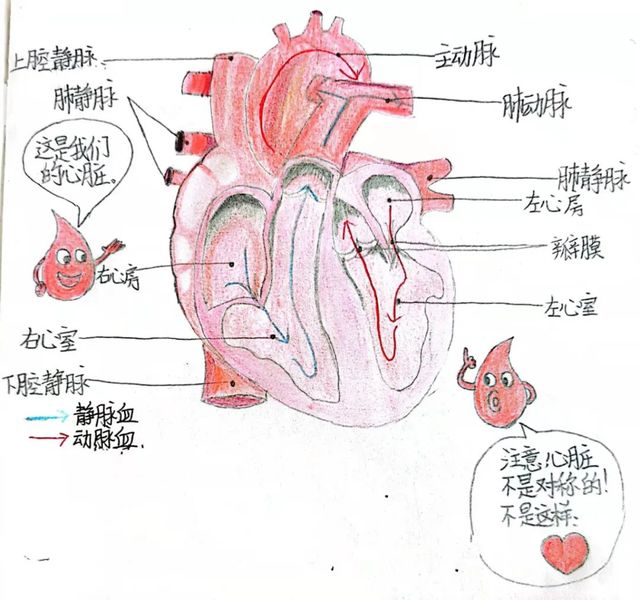 上腔静脉
主动脉
肺静脉
肺动脉
这是我们
的心脏。
肺静脉
左心房
瓣膜
右心房
左心室
右心室
下腔静脉
静脉血
动脉血.
注意,心脏
不是对称的!
不是这样: